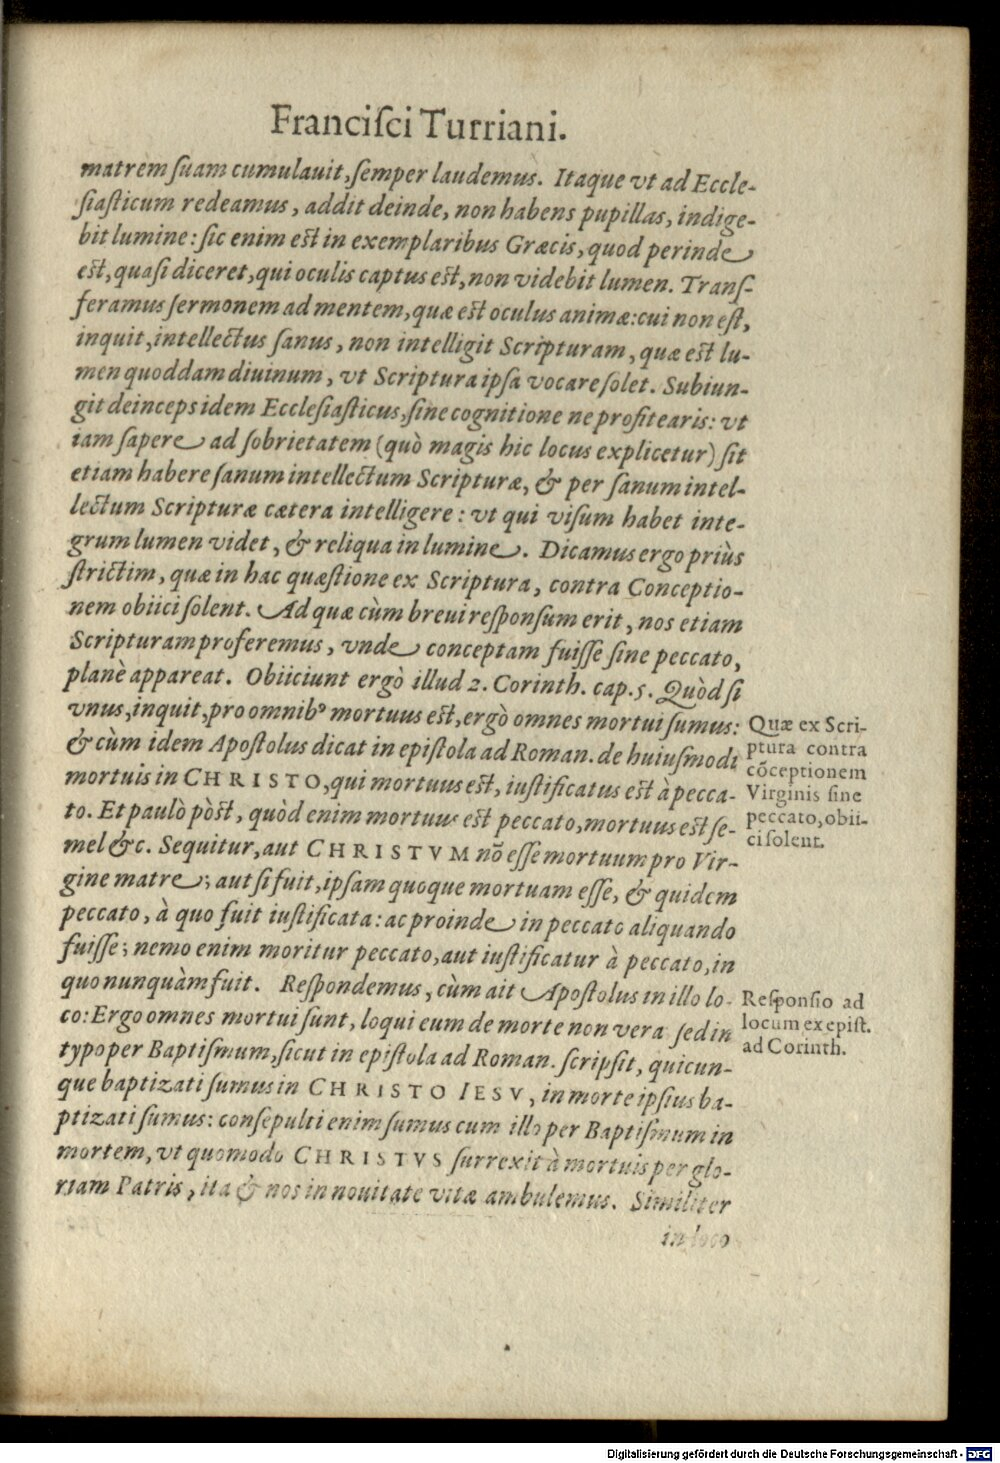 Franciſci Turriani.
matrem ſuam cumulauit, ſemper laudemus. Itaque vt ad Eccle-
ſiaſticum redeamus, addit deinde, non habens pupillas, indige-
bit lumine: ſic enim eſt in exemplaribus Græcis, quod perinde
eſt, quaſi diceret, qui oculis captus eſt, non videbit lumen. Tranſ-
feramus ſermonem ad mentem, quæ eſt oculus animæ: cui non eſt,
inquit, intellectus ſanus, non intelligit Scripturam, quæ eſt lu-
men quoddam diuinum, vt Scriptura ipſa vocare ſolet. Subiun-
git deinceps idem Eccleſiaſticus, ſine cognitione ne profitearis: vt
iam ſapere ad ſobrietatem (quò magis hic locus explicetur) ſit
etiam habere ſanum intellectum Scripturæ, & per ſanum intel-
lectum Scripturæ cætera intelligere: vt qui viſum habet inte-
grum lumen videt, & reliqua in lumine. Dicamus ergo priùs
ſtrictim, quæ in hac quæſtione ex Scriptura, contra Conceptio-
nem obiici ſolent. Ad quæ cùm breui reſponſum erit, nos etiam
Scripturam proferemus, vnde conceptam fuiſſe ſine peccato,
planè appareat. Obiiciunt ergò illud 2. Corinth. cap. 5. Quòd ſi
vnus, inquit, pro omnibꝰ mortuus eſt, ergò omnes mortui ſumus:
& cùm idem Apoſtolus dicat in epiſtola ad Roman. de huiuſmodi
mortuis in CHRISTO, qui mortuus eſt, iuſtificatus eſt à pecca-
to. Et paulò pòſt, quòd enim mortuus eſt peccato, mortuus eſt ſe-
mel &c. Sequitur, aut CHRISTVM nō eſſe mortuum pro Vir-
gine matre; aut ſi fuit, ipſam quoque mortuam eſſe, & quidem
peccato, à quo fuit iuſtificata: ac proinde in peccato aliquando
fuiſſe; nemo enim moritur peccato, aut iuſtificatur à peccato, in
quo nunquàm fuit. Reſpondemus, cùm ait Apoſtolus in illo lo-
co: Ergo omnes mortui ſunt, loqui eum de morte non vera ſed in
typo per Baptiſmum, ſicut in epiſtola ad Roman. ſcripſit, quicun-
que baptizati ſumus in CHRISTO IESV, in morte ipſius ba-
ptizati ſumus: conſepulti enim ſumus cum illo per Baptiſmum in
mortem, vt quomodo CHRISTVS ſurrexit à mortuis per glo-
riam Patris, ita & nos in nouitate vitæ ambulemus. Similiter
in loco
Quæ ex Scri-
ptura contra
cōceptionem
Virginis ſine
peccato, obii-
ci ſolent.
Reſponſio ad
locum ex epiſt.
ad Corinth.
Digitalisierung gefördert durch die Deutsche Forschungsgemeinschaft - DFG